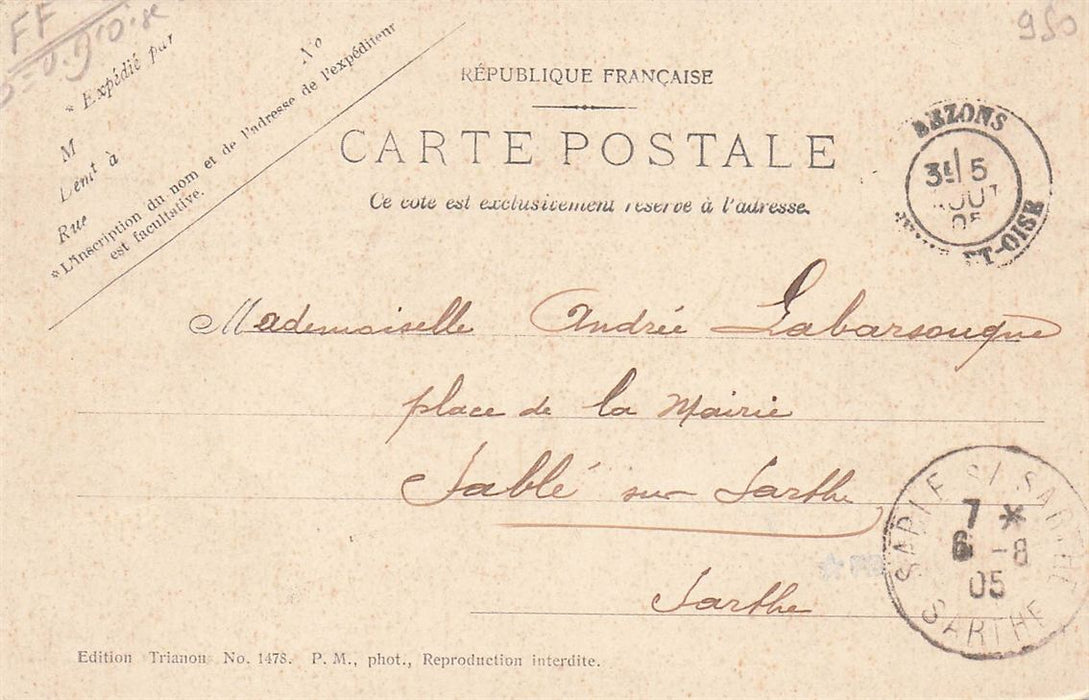 FF
950
* Expédié par
No
M
Demt à
Rue
* L'inscription du nom et de l'adresse de l'expéditeur
est facultative.
RÉPUBLIQUE FRANÇAISE
CARTE POSTALE
Ce côté est exclusivement réservé à l'adresse.
BEZONS
3E/5
AOUT
05
ET-OISE
Mademoiselle Andrée Labarsouque
place de la Mairie
Sablé sur Sarthe
Sarthe
SABLE S/ SARTHE
7 *
6 -8
05
SARTHE
Edition Trianon No. 1478. P. M., phot., Reproduction interdite.